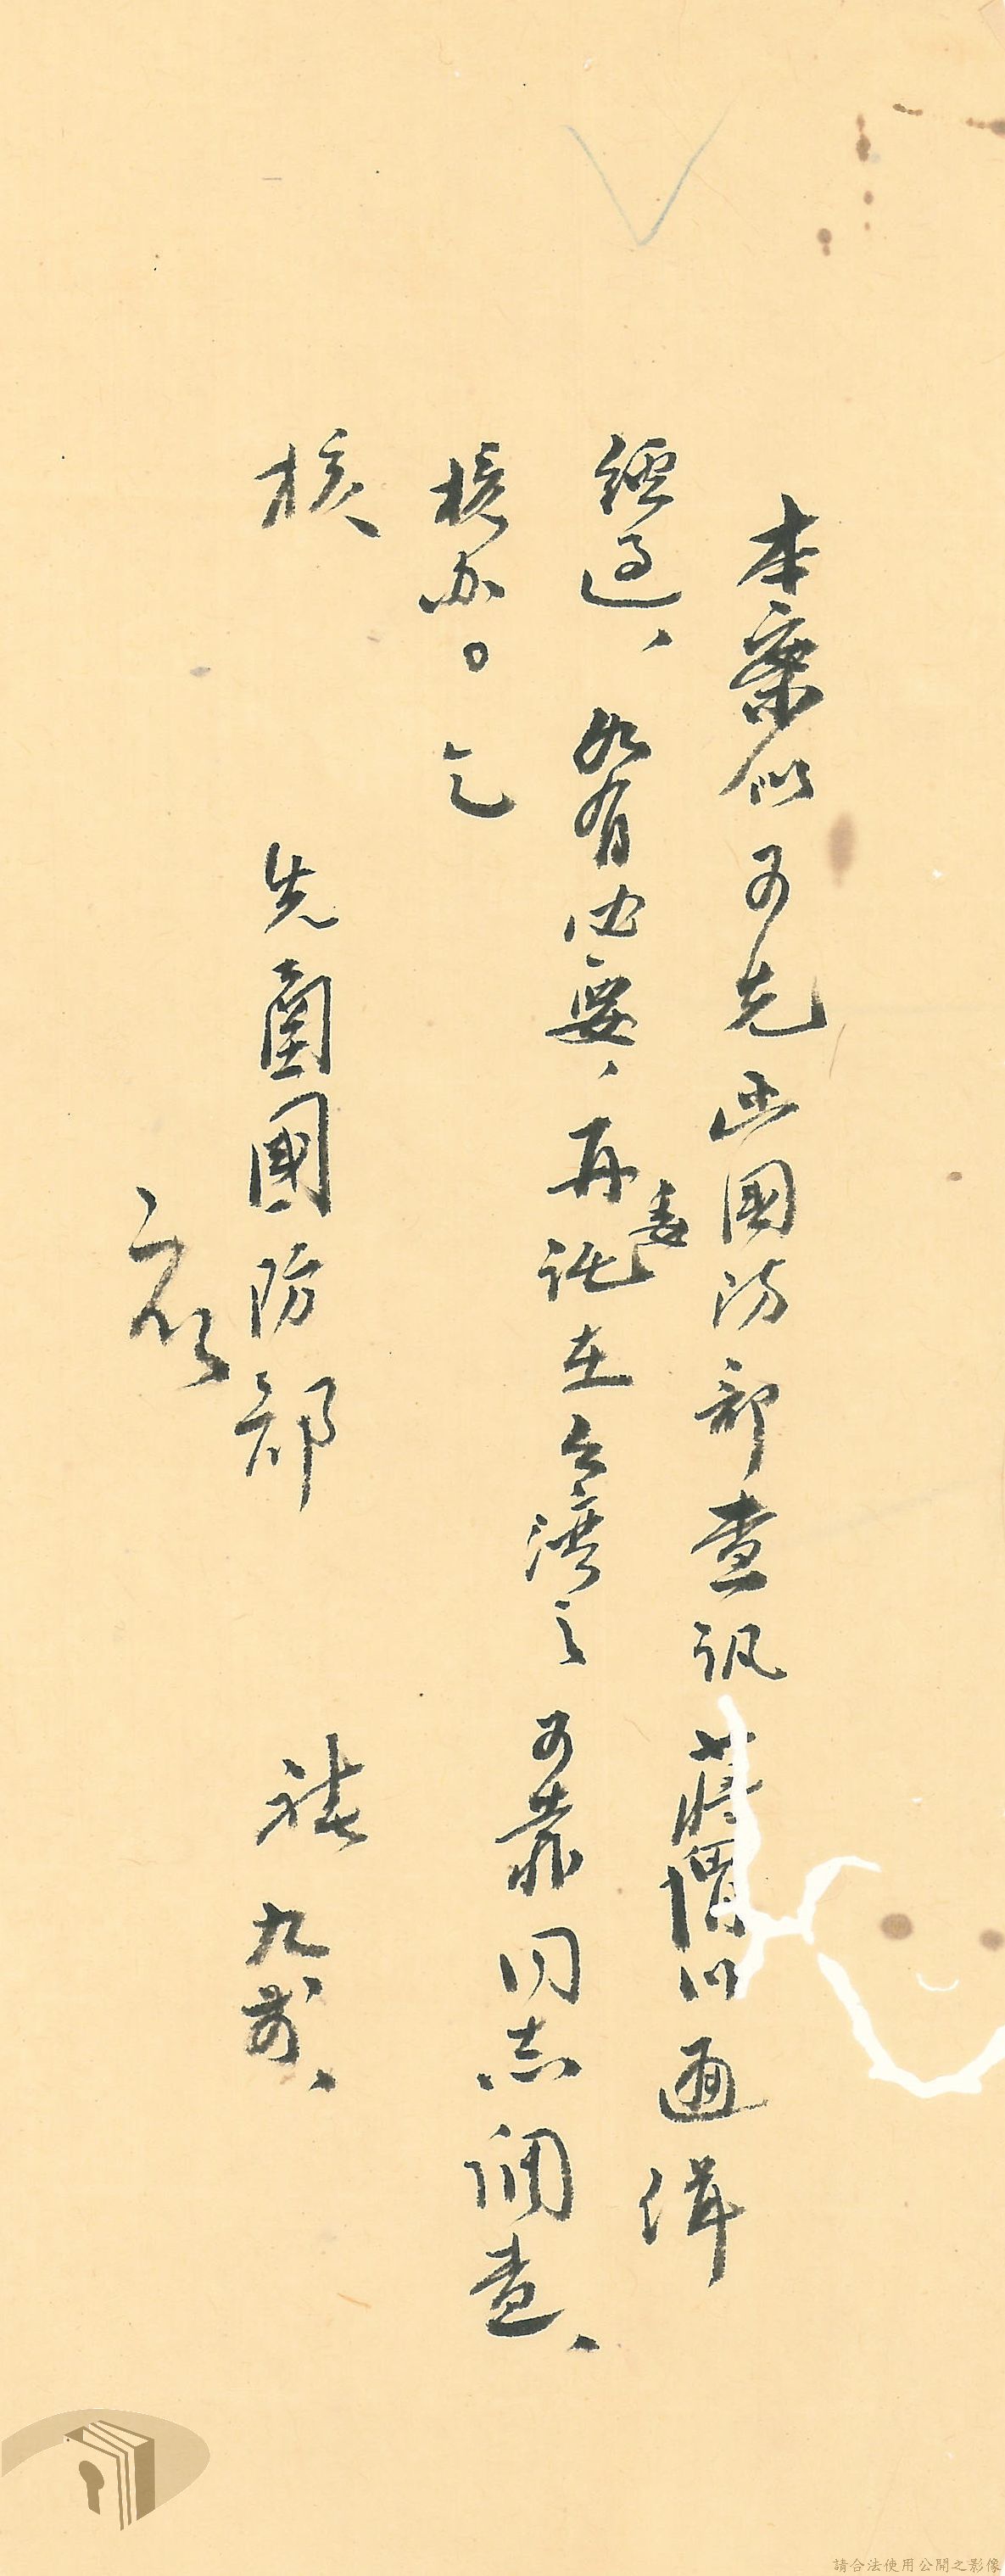 本案似可先函國防部查訊蔣渭川通緝
經過、如有必要、再委託在台灣之可靠同志調查、
核办。乞
核
先函國防部
九、
請合法使用公開之影像